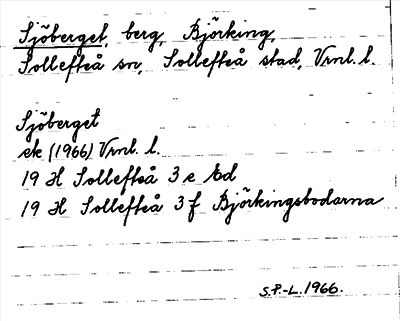 Sjöberget, berg, Björking,
Sollefteå sn, Sollefteå stad, Vrnl. l.
Sjöberget
ek (1966) Vrnl. l.
19 H Sollefteå 3 e Ed
19 H Sollefteå 3 f Björkingsbodarna
S.P.-L. 1966.